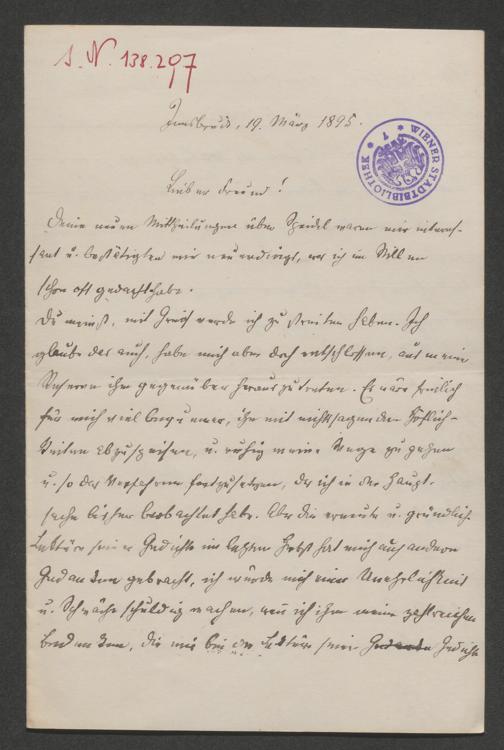 I. N. 138.297
Innsbruck, 19. März 1895.
WIENER STADTBIBLIOTHEK
Lieber Freund!
Deine neuen Mittheilungen über Speidel waren mir interes-
sant u. bestätigten mir neuerdings, was ich im Stillen
schon oft gedacht habe.
Du meinst, mit Greif werde ich zu streiten haben. Ich
glaube das auch, habe mich aber doch entschlossen, aus meiner
Reserve ihm gegenüber herauszutreten. Es wäre freilich
für mich viel bequemer, ihn mit nichtssagenden Höflich-
keiten abzuspeisen, u. ruhig meine Wege zu gehen
u. so das Verfahren fortzusetzen, das ich in der Haupt-
sache bisher beobachtet habe. Aber die erneute u. gründliche
Lektüre seiner Gedichte im letzten Herbst hat mich auf andere
Gedanken gebracht, ich würde mich einer Unehrlichkeit
u. Schwäche schuldig machen, wenn ich ihm meine zahlreichen
Bedenken, die mir bei der Lektüre seiner Gedichte